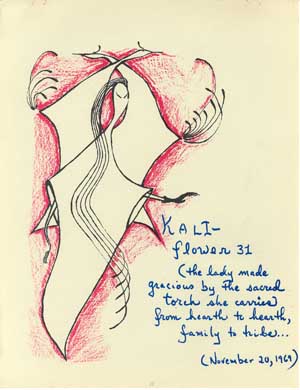 KALI-
flower 31
(the lady made
gracious by the sacred
torch she carries
from hearth to hearth,
family to tribe...
(November 20, 1969)